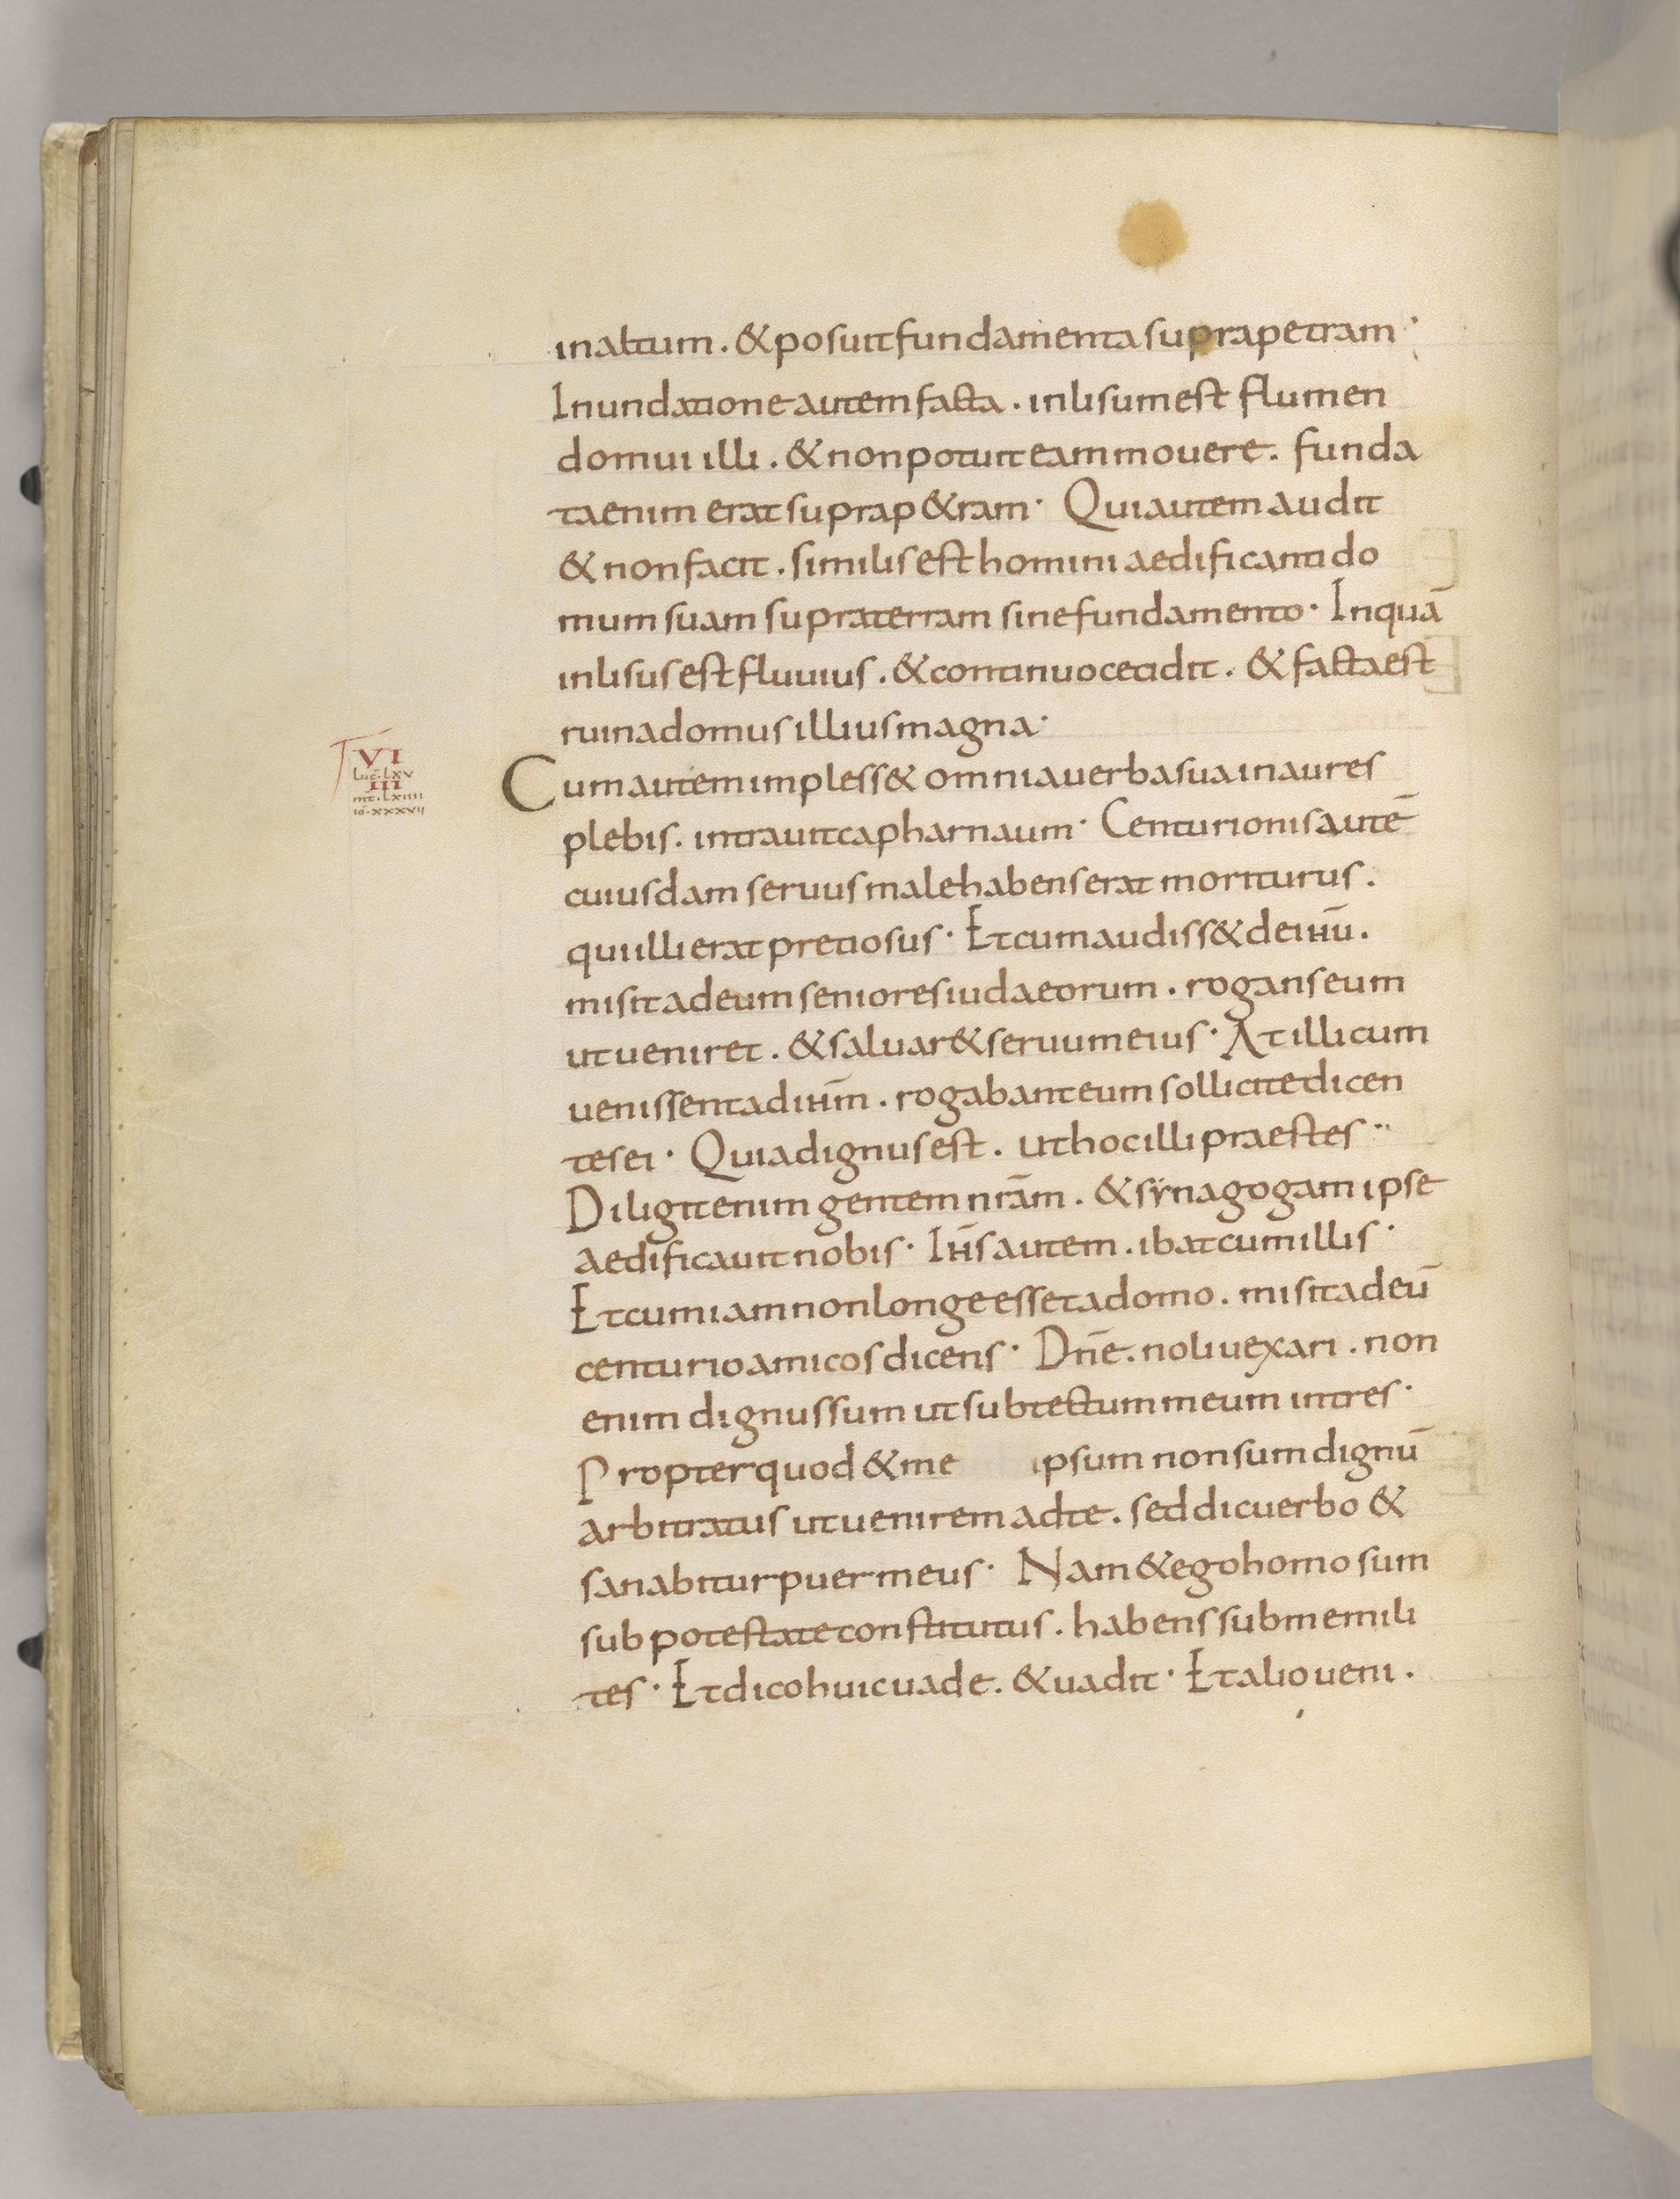 in altum . & posuit fundamenta supra petram ·
Inundatione autem facta . inlisum est flumen
domui illi . & non potuit eam mouere . funda
ta enim erat supra p&ram · Qui autem audit
& non facit . similis est homini aedificanti do
mum suam supra terram sine fundamento · In quā
inlisus est fluuius . & continuo cecidit . & facta est
ruina domus illius magna ·
VI
Luc̄ · LXV
III
mt̄ · LXIIII
iō · XXXVII
Cum autem impless& omnia uerba sua in aures
plebis . intrauit capharnaum · Centurionis autē
cuiusdam seruus male habens erat moriturus .
qui illi erat pretiosus · Et cum audiss& de ihū .
misit ad eum seniores iudaeorum . rogans eum
ut ueniret . & saluar& seruum eius · At illi cum
uenissent ad ihm̄ . rogabant eum sollicite dicen
tes ei · Quia dignus est . ut hoc illi praestes ··
Diligit enim gentem nrām . & sẏnagogam ipse
aedificauit nobis · Ihs̄ autem . ibat cum illis ·
Et cum iam non longe esset a domo . misit ad eū
centurio amicos dicens · Dnē . noli uexari . non
enim dignus sum ut sub tectum meum intres ·
Propter quod & me ipsum non sum dignū
arbitratus ut uenirem ad te . sed dic uerbo &
sanabitur puer meus · Nam & ego homo sum
sub potestate constitutus . habens sub me mili
tes · Et dico huic uade . & uadit · Et alio ueni .